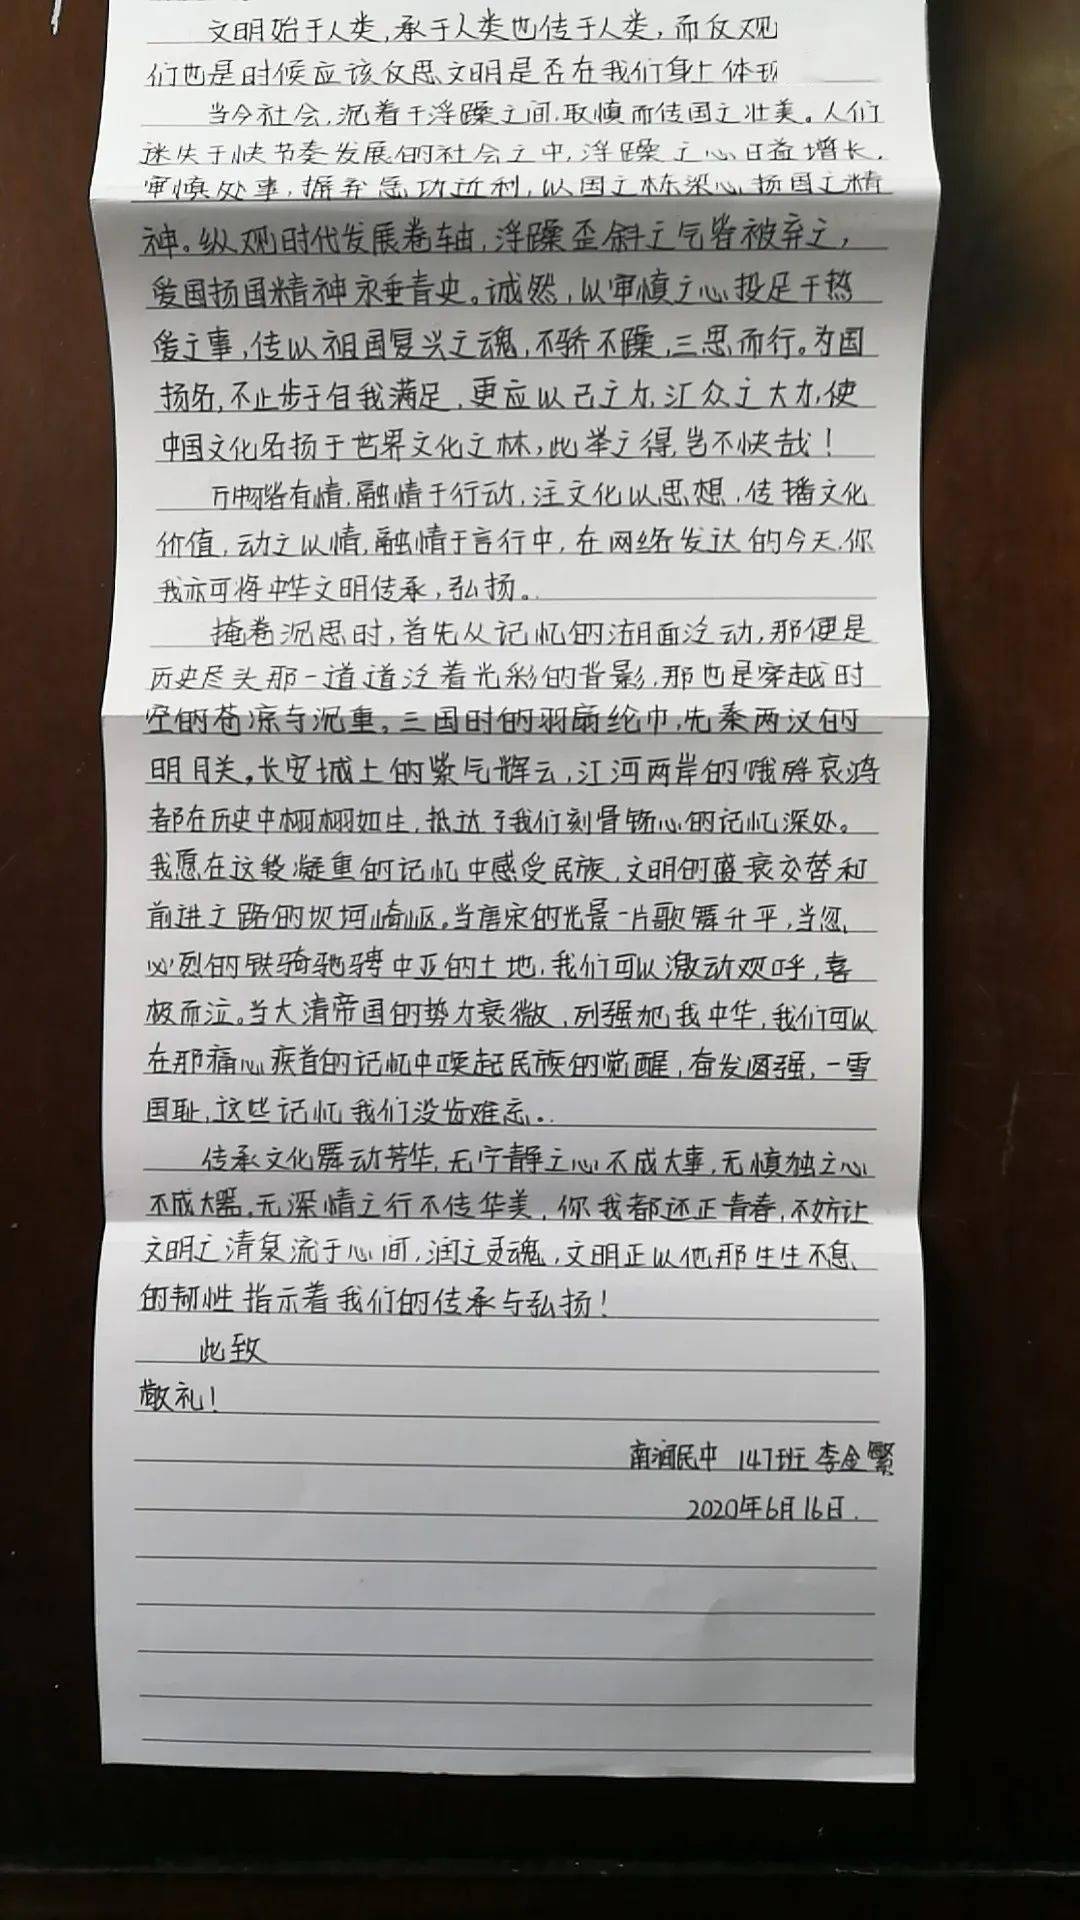 文明始于人类,承于人类也传于人类,而反观
们也是时候应该反思文明是否在我们身上体现
当今社会,沉着于浮躁之间,取慎而传国之壮美。人们
迷失于快节奏发展的社会之中,浮躁之心日益增长,
审慎处事,摒弃急功近利,以国之栋梁心扬国之精
神。纵观时代发展卷轴,浮躁歪斜之气皆被弃之,
爱国扬国精神永垂青史。诚然,以审慎之心投足于热
爱之事,传以祖国复兴之魂,不骄不躁,三思而行。为国
扬名,不止步于自我满足,更应以己之力,汇众之大力,使
中国文化名扬于世界文化之林,此举之得,岂不快哉!
万物皆有情,融情于行动,注文化以思想,传播文化
价值,动之以情,融情于言行中,在网络发达的今天,你
我亦可将中华文明传承,弘扬。
掩卷沉思时,首先从记忆的湖面泛动,那便是
历史尽头那一道道泛着光彩的背影,那也是穿越时
空的苍凉与沉重。三国时的羽扇纶巾,先秦两汉的
明月关。长安城上的紫气辉云,江河两岸的哦殍哀鸿
都在历史中栩栩如生,抵达了我们刻骨畅心的记忆深处。
我愿在这段凝重的记忆中感受民族,文明的盛衰交替和
前进之路的坎坷崎岖。当唐宋的光景一片歌舞升平,当忽
必烈的铁骑驰骋中亚的土地,我们可以激动欢呼,喜
极而泣。当大清帝国的势力衰微,列强犯我中华,我们可以
在那痛心疾首的记忆中唤起民族的觉醒,奋发图强,一雪
国耻,这些记忆我们没齿难忘。
传承文化舞动芳华,无宁静之心不成大事,无慎独之心
不成大器,无深情之行不传华美,你我都还正青春,不妨让
文明之清泉流于心间,润之灵魂,文明正以他那生生不息
的韧性指示着我们的传承与弘扬!
此致
敬礼!
南涧民中 147班 李金繁
2020年6月16日.